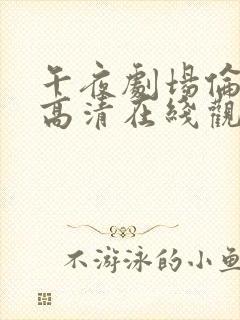 午夜劇場倫
高清在綫觀
不游泳的小魚